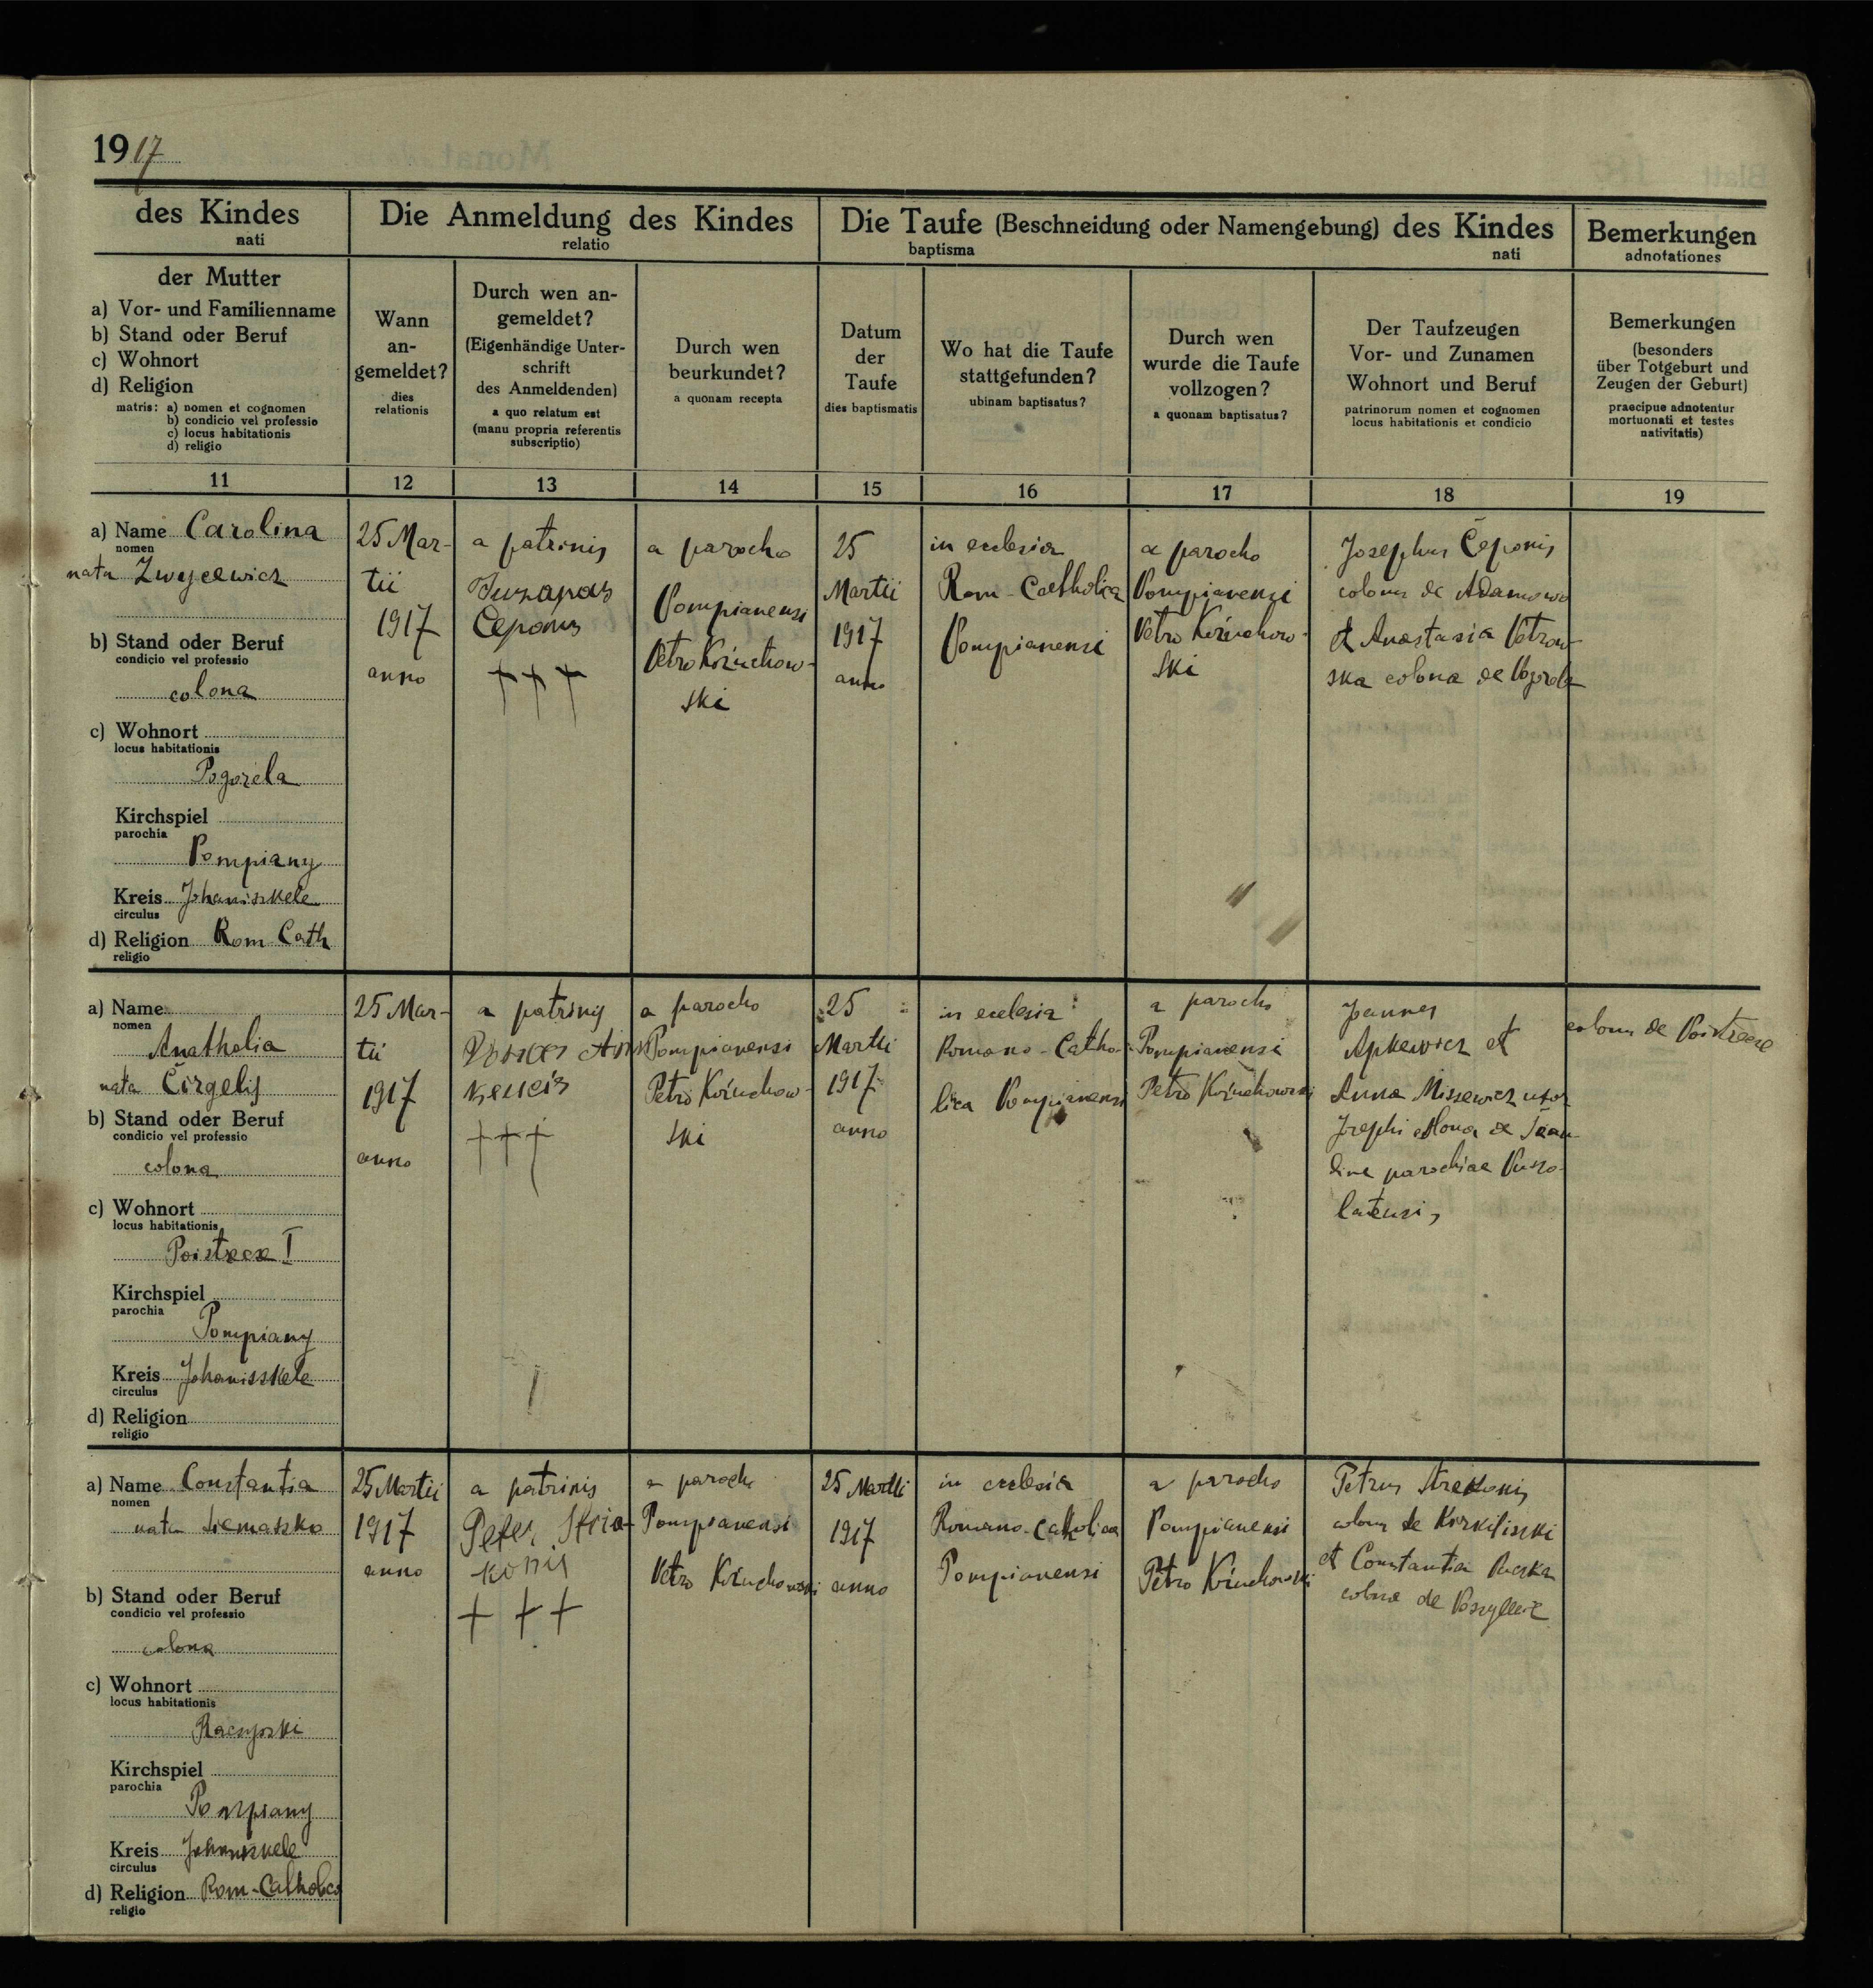 1917
des Kindes
nati
Die Anmeldung des Kindes
relatio
Die Taufe (Beschneidung oder Namengebung) des Kindes
baptisma nati
Bemerkungen
adnotationes
der Mutter
a) Vor- und Familienname
b) Stand oder Beruf
c) Wohnort
d) Religion
matris: a) nomen et cognomen
b) condicio vel professio
c) locus habitationis
d) religio
Wann
an-
gemeldet?
dies
relationis
Durch wen an-
gemeldet?
(Eigenhändige Unter-
schrift
des Anmeldenden)
a quo relatum est
(manu propria referentis
subscriptio)
Durch wen
beurkundet?
a quonam recepta
Datum
der
Taufe
dies baptismatis
Wo hat die Taufe
stattgefunden?
ubinam baptisatus?
Durch wen
wurde die Taufe
vollzogen?
a quonam baptisatus?
Der Taufzeugen
Vor- und Zunamen
Wohnort und Beruf
patrinorum nomen et cognomen
locus habitationis et condicio
Bemerkungen
(besonders
über Totgeburt und
Zeugen der Geburt)
praecipue adnotentur
mortuonati et testes
nativitatis)
11 12 13 14 15 16 17 18 19
a) Name Carolina
nomen
nata Zwycewicz
b) Stand oder Beruf
condicio vel professio
colona
c) Wohnort
locus habitationis
Pogorela
Kirchspiel
parochia
Pompiany
Kreis Johaniszkele
circulus
d) Religion Rom Cath
religio
25 Mar-
tii
1917
anno
a patrinis
Juzapas
Čeponis
+++
a parocho
Pompianensi
Petro Koźuchow-
ski
25
Martii
1917
anno
in ecclesia
Rom-Catholica
Pompianensi
a parocho
Pompianensi
Petro Koźuchow-
ski
Josephus Čeponis
colonus de Adamowo
et Anastasia Petrow-
ska colona de
a) Name
nomen
Anathalia
nata Čirgelis
b) Stand oder Beruf
condicio vel professio
colona
c) Wohnort
locus habitationis
Poistrece I
Kirchspiel
parochia
Pompiany
Kreis Johanisskele
circulus
d) Religion
religio
25 Mar-
tii
1917
anno
a patrinis
+++
a parocho
Pompianensi
Petro Koźuchow-
ski
25
Martii
1917
anno
in ecclesia
Romano-Catho-
lica Pompianensi
a parocho
Pompianensi
Petro Koźuchowski
Joannes
Apkewicz et
Anna Missewicz uxor
Josephi colona de
parochiae
colonus de Poistrece
a) Name Constantia
nomen
nata Siemaszko
b) Stand oder Beruf
condicio vel professio
colona
c) Wohnort
locus habitationis
Raczyszki
Kirchspiel
parochia
Pompiany
Kreis Johaniszkele
circulus
d) Religion Rom-Catholica
religio
25 Martii
1917
anno
a patrinis
Peter Stria-
konis
+++
a parocho
Pompianensi
Petro Koźuchowski
25 Martii
1917
anno
in ecclesia
Romano-Catholica
Pompianensi
a parocho
Pompianensi
Petro Koźuchowski
Petrus Strekonis
colonus de Kirkiliszki
et Constantia
colona de